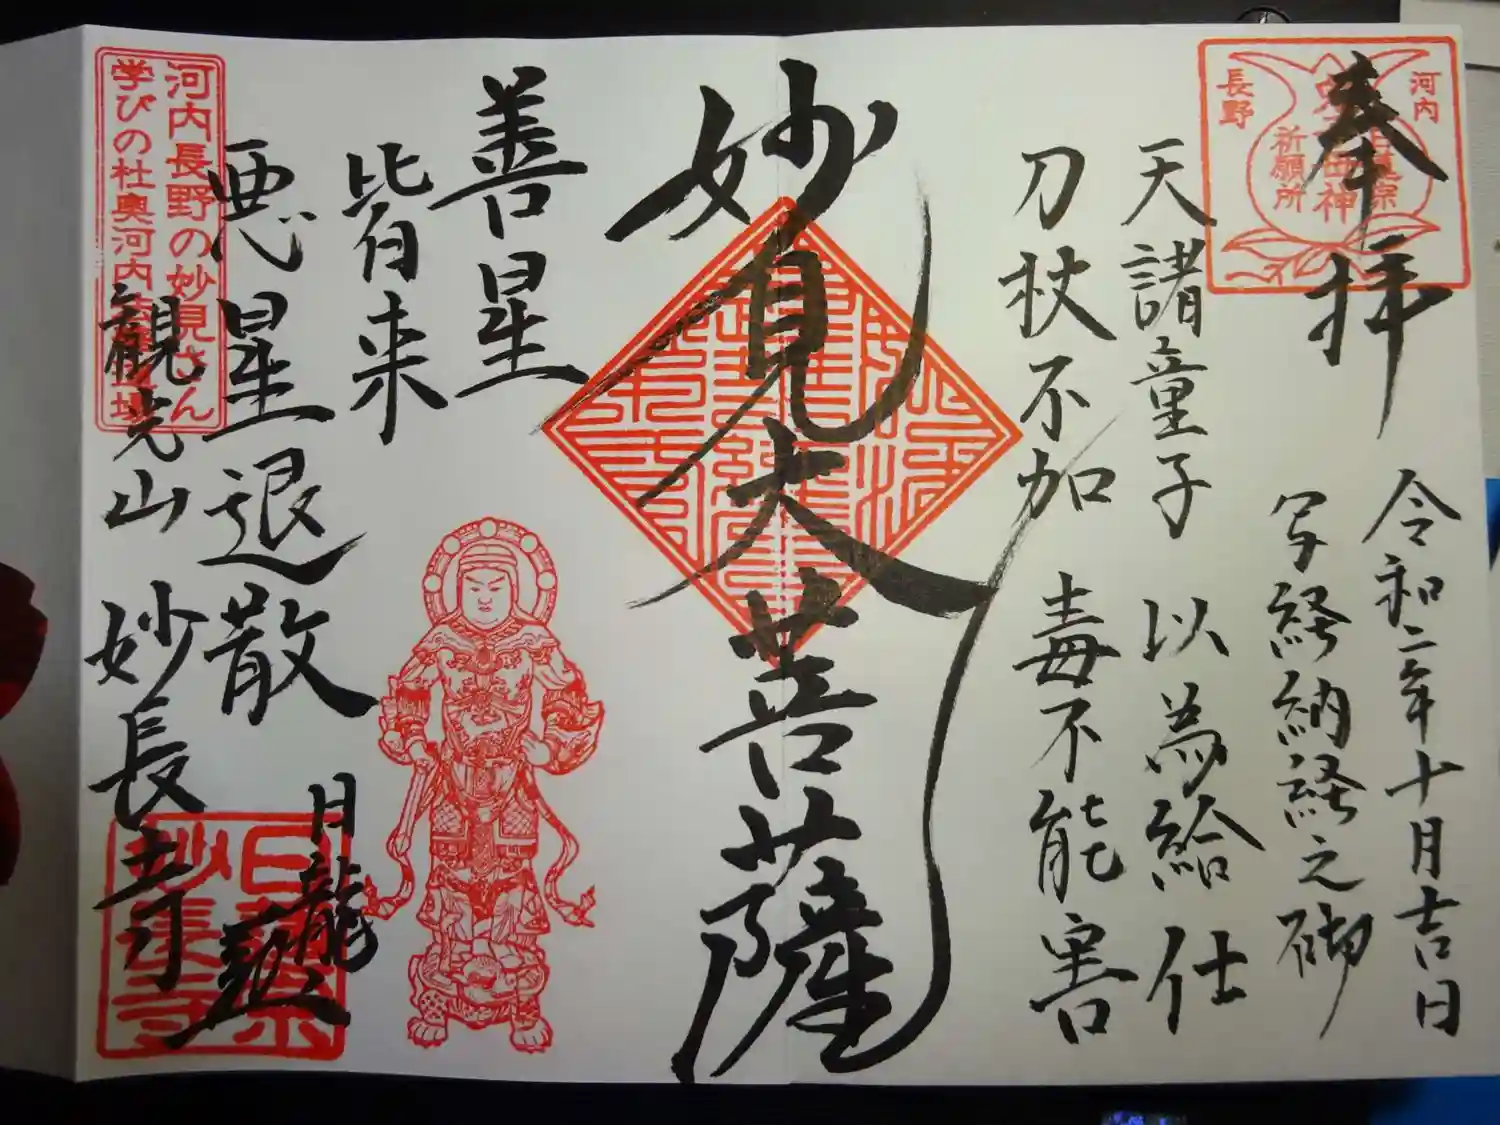 奉拝
令和二年十月吉日
写経納経之砌
天諸童子 以為給仕
刀杖不加 毒不能害
妙見大菩薩
善星
皆来
悪星退散
日龍
観光山 妙長寺
河内
長野
祈願所
河内長野の妙見さん
学びの杜奥河内